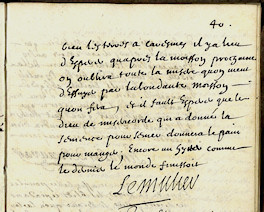 40.
bien les terres a couvrir il ya lieu
d'Esperer quapres la moisson prochaine
on oublira toute la misere quon vient
d'Essuyer par labondante moisson
quon fera, et il fault Esperer que le
dieu de misericorde qui a donné la
semence pour semer donnera le pain
pour manger. Encore un hyver comme
le dernier le monde finissoit
Lemulier